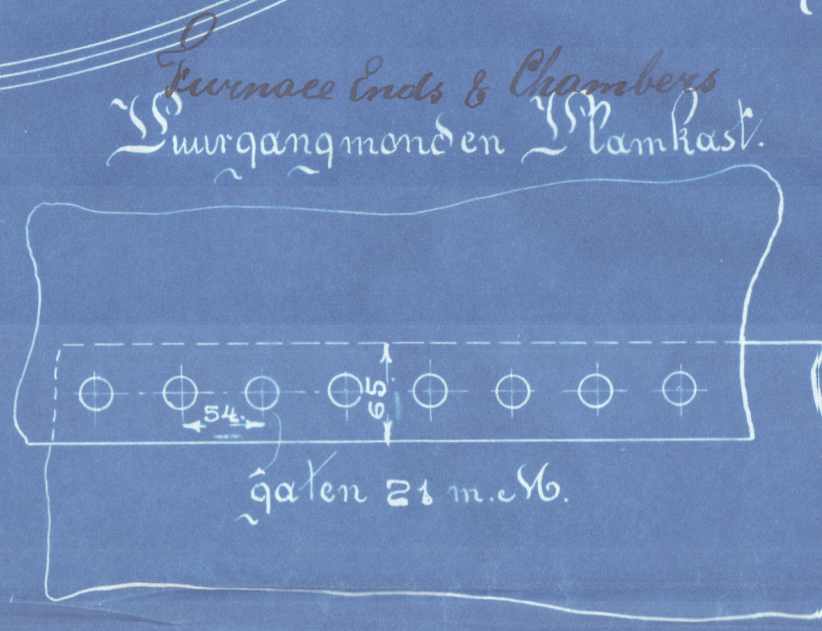 Furnace Ends & Chambers
Vuurgangmonden Vlamkast.
54.
65
gaten 21 m.M.